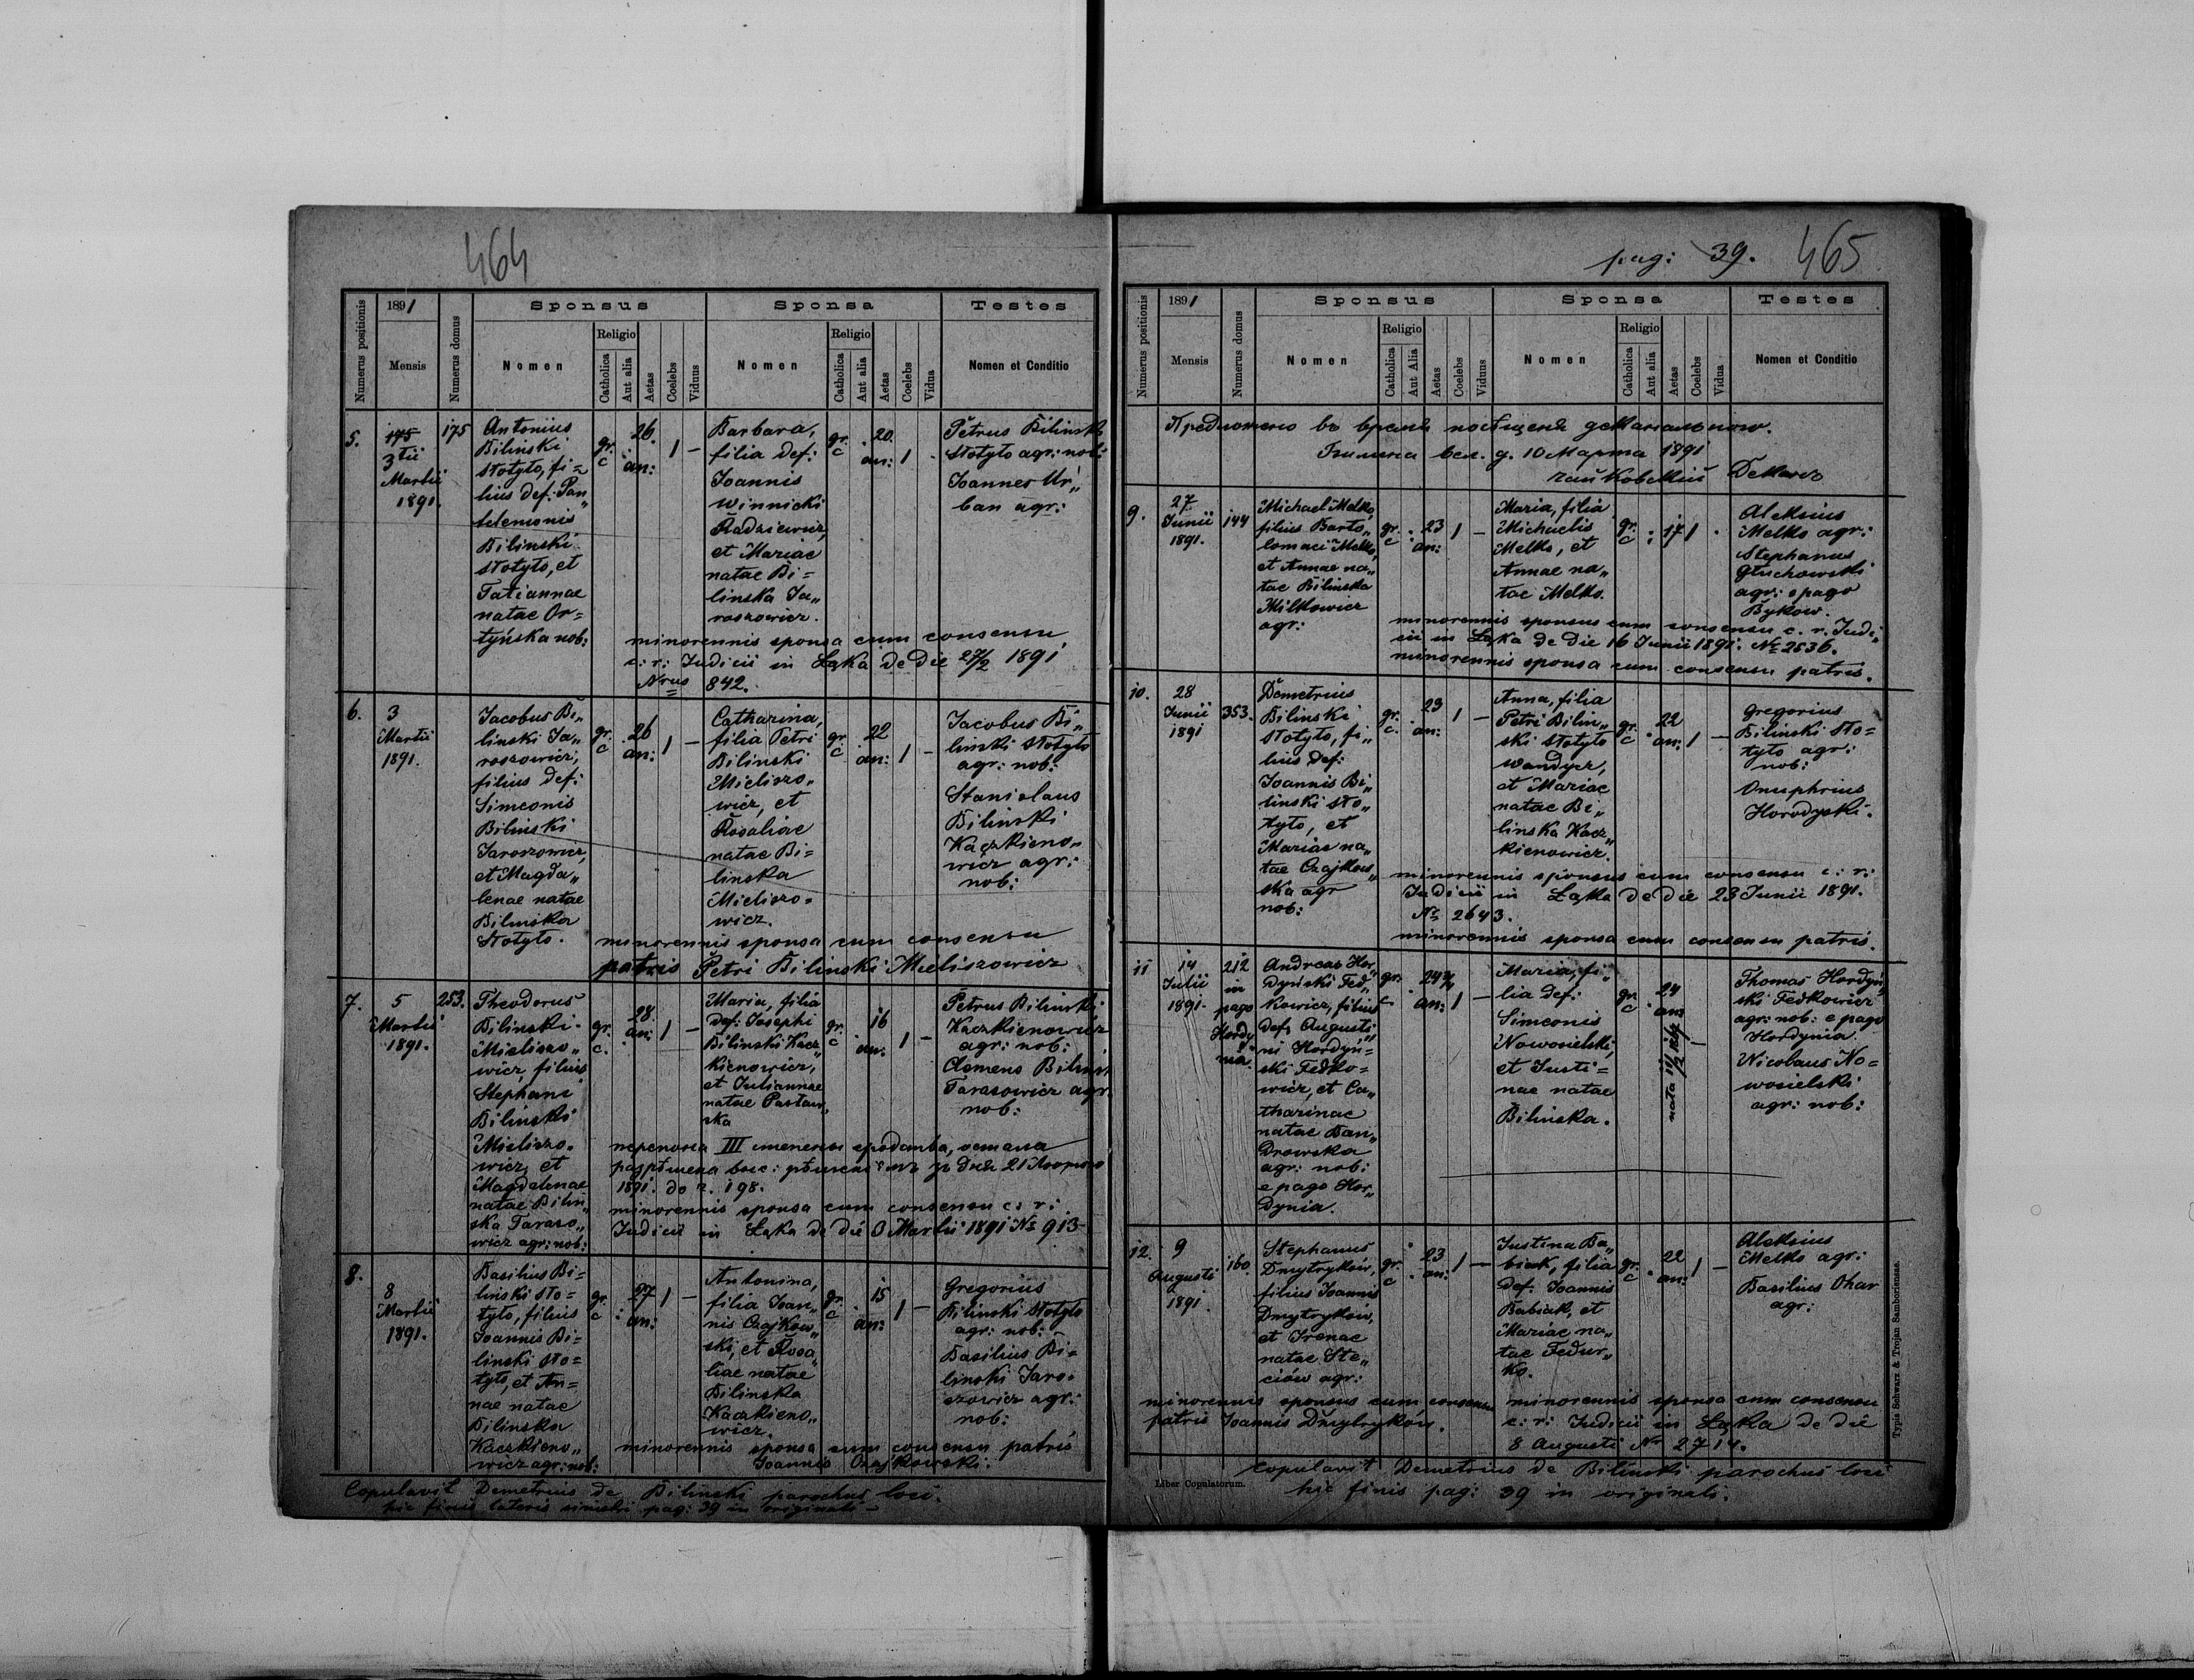 464
Numerus positionis
1891
Mensis
Numerus domus
Sponsus
Nomen
Religio
Catholica
Aut alia
Aetas
Coelebs
Viduus
Sponsa
Nomen
Religio
Catholica
Aut alia
Aetas
Coelebs
Vidua
Testes
Nomen et Conditio
5.
175
3tii
Martii
1891.
175
Antonius
Bilinski
Stotyto, fi=
lius def: Pan„
telemonis
Bilinski
Stotyto, et
Tatiannae
natae Or=
tyńska nob:
gr.
c
26.
an:
1
—
Barbara,
filia def:
Joannis
Winnicki
Radziewicz,
et Mariae
natae Bi=
linska Ja„
roszowicz.
gr.
c
20.
an:
1
Petrus Bilinski
Stotyto agr: nob:
Joannes Ur„
ban agr:
minorennis sponsa cum consensu
c: r: Judicii in Łąka de die 27/2 1891
Nrus 842.
6.
3
Martii
1891.
Jacobus Bi„
linski Ja„
roszowicz,
filius def:
Simeonis
Bilinski
Jaroszowicz,
et Magda„
lenae natae
Bilinska
Stotyto.
gr.
c
26
an:
1
—
Catharina,
filia Petri
Bilinski
Mieliszo„
wicz, et
Rosaliae
natae Bi=
linska
Mieliszo=
wicz.
gr.
c
22
an:
1
—
Jacobus Bi„
linski Stotyto
agr: nob:
Stanislaus
Bilinski
Kaczkieno„
wicz agr:
nob:
minorennis sponsa cum consensu
patris Petri Bilinski Mieliszowicz
7.
5
Martii
1891.
253.
Theodorus
Bilinski
Mieliszo„
wicz, filius
Stephani
Bilinski
Mieliszo„
wicz, et
Magdalenae
natae Bilin„
ska Taraso„
wicz agr: nob:
gr.
c.
28.
an:
1
—
Maria, filia
def: Josephi
Bilinski Kacz„
kienowicz,
et Juliannae
natae Pastaw„
ska
gr.
c
16
an:
1
—
Petrus Bilinski
Kaczkienowicz
agr: nob:
Clemens Bilinski
Tarasowicz agr:
nob:
III
1891. до ч. 198.
minorennis sponsa cum consensu c: r:
Judicii in Łąka de die 3 Martii 1891 № 913
8.
8
Martii
1891.
Basilius Bi=
linski Sto=
tyto, filius
Joannis Bi=
linski Sto=
tyto, et An=
nae natae
Bilinska
Kaczkieno„
wicz agr: nob:
gr.
c
27
an:
1
—
Antonina,
filia Joan„
nis Czajkow„
ski, et Rosa„
liae natae
Bilinska
Kaczkieno„
wicz.
gr.
c
15
an:
1
—
Gregorius
Bilinski Stotyto
agr: nob:
Basilius Bi=
linski Jaro=
szowicz agr:
nob:
minorennis sponsa cum consensu patris
Joannis Czajkowski.
Copulavit Demetrius de Bilinski parochus loci.
hic finis lateris sinistri pag: 39 in originali —
pag: 39. 465
Numerus positionis
1891
Mensis
Numerus domus
Sponsus
Nomen
Religio
Catholica
Aut Alia
Aetas
Coelebs
Viduus
Sponsa
Nomen
Religio
Catholica
Aut alia
Aetas
Coelebs
Vidua
Testes
Nomen et Conditio
Предложено во время
10 Марта 1891
9.
27
Junii
1891.
144
Michael Melko,
filius Barto„
lomaei Melko,
et Annae na„
tae Bilinska
Milkowicz
agr:
gr.
c
23
an:
1
—
Maria, filia
Michaelis
Melko, et
Annae na„
tae Melko.
gr.
c
17
1
Aleksius
Melko agr:
Stephanus
Głuchowski
agr: e pago
Bykow.
minorennis sponsus cum consensu c. r. Judi„
cii in Łąka de die 16 Junii 1891. № 2536.
minorennis sponsa cum consensu patris.
10.
28
Junii
1891
353.
Demetrius
Bilinski
Stotyto, fi„
lius def:
Joannis Bi„
linski Sto„
tyto, et
Mariae na„
tae Czajkow„
ska agr
nob:
gr.
c.
23
an:
1
—
Anna, filia
Petri Bilin„
ski Stotyto
Wandycz,
et Mariae
natae Bi„
linska Kacz„
kienowicz.
gr.
c
22
an:
1
—
Gregorius
Bilinski Sto=
tyto agr:
nob:
Onuphrius
Horodyski.
minorennis sponsus cum consensu c: r:
Judicii in Łąka de die 23 Junii 1891.
№ 2643.
minorennis sponsa cum consensu patris.
11
14
Julii
1891.
212
in
pago
Hordy
nia.
Andreas Hor„
dyński Fed„
kowicz, filius
def: Augusti„
ni Hordyn=
ski Fedko=
wicz, et Ca„
tharinae
natae Ban„
drowska
agr: nob:
e pago Hor„
dynia.
gr.
c
an:
1
—
Maria, fi„
lia def:
Simeonis
Nowosielski,
et Justi=
nae natae
Bilinska.
gr.
c
24
an:
nata
—
Thomas Hordyń„
ski Fedkowicz
agr: nob: e pago
Hordynia.
Nicolaus No=
wosielski
agr: nob:
12.
9
Augusti
1891.
160.
Stephanus
Dmytryków,
filius Joannis
Dmytryków,
et Irenae
natae Ste„
ciów agr:
gr.
c
23
an:
1
—
Justina Ba„
biak, filia
def. Joannis
Babiak, et
Mariae na„
tae Fedur„
ko.
gr.
c
22
an:
1
—
Aleksius
Melko agr:
Basilius Ohar
agr:
minorennis sponsus cum consensu
patris Joannis Dmytryków.
minorennis sponsa cum consensu
c: r: Judicii in Łąka de die
8 Augusti Nr 2714.
Copulavit Demetrius de Bilinski parochus loci
Liber Copulatorum.
hic finis pag: 39 in originali.
Typis Schwarz & Trojan Samboriensae.